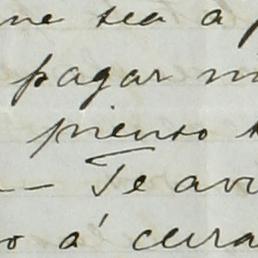 me sea a
pagar
pienso
Te avi
o á cura